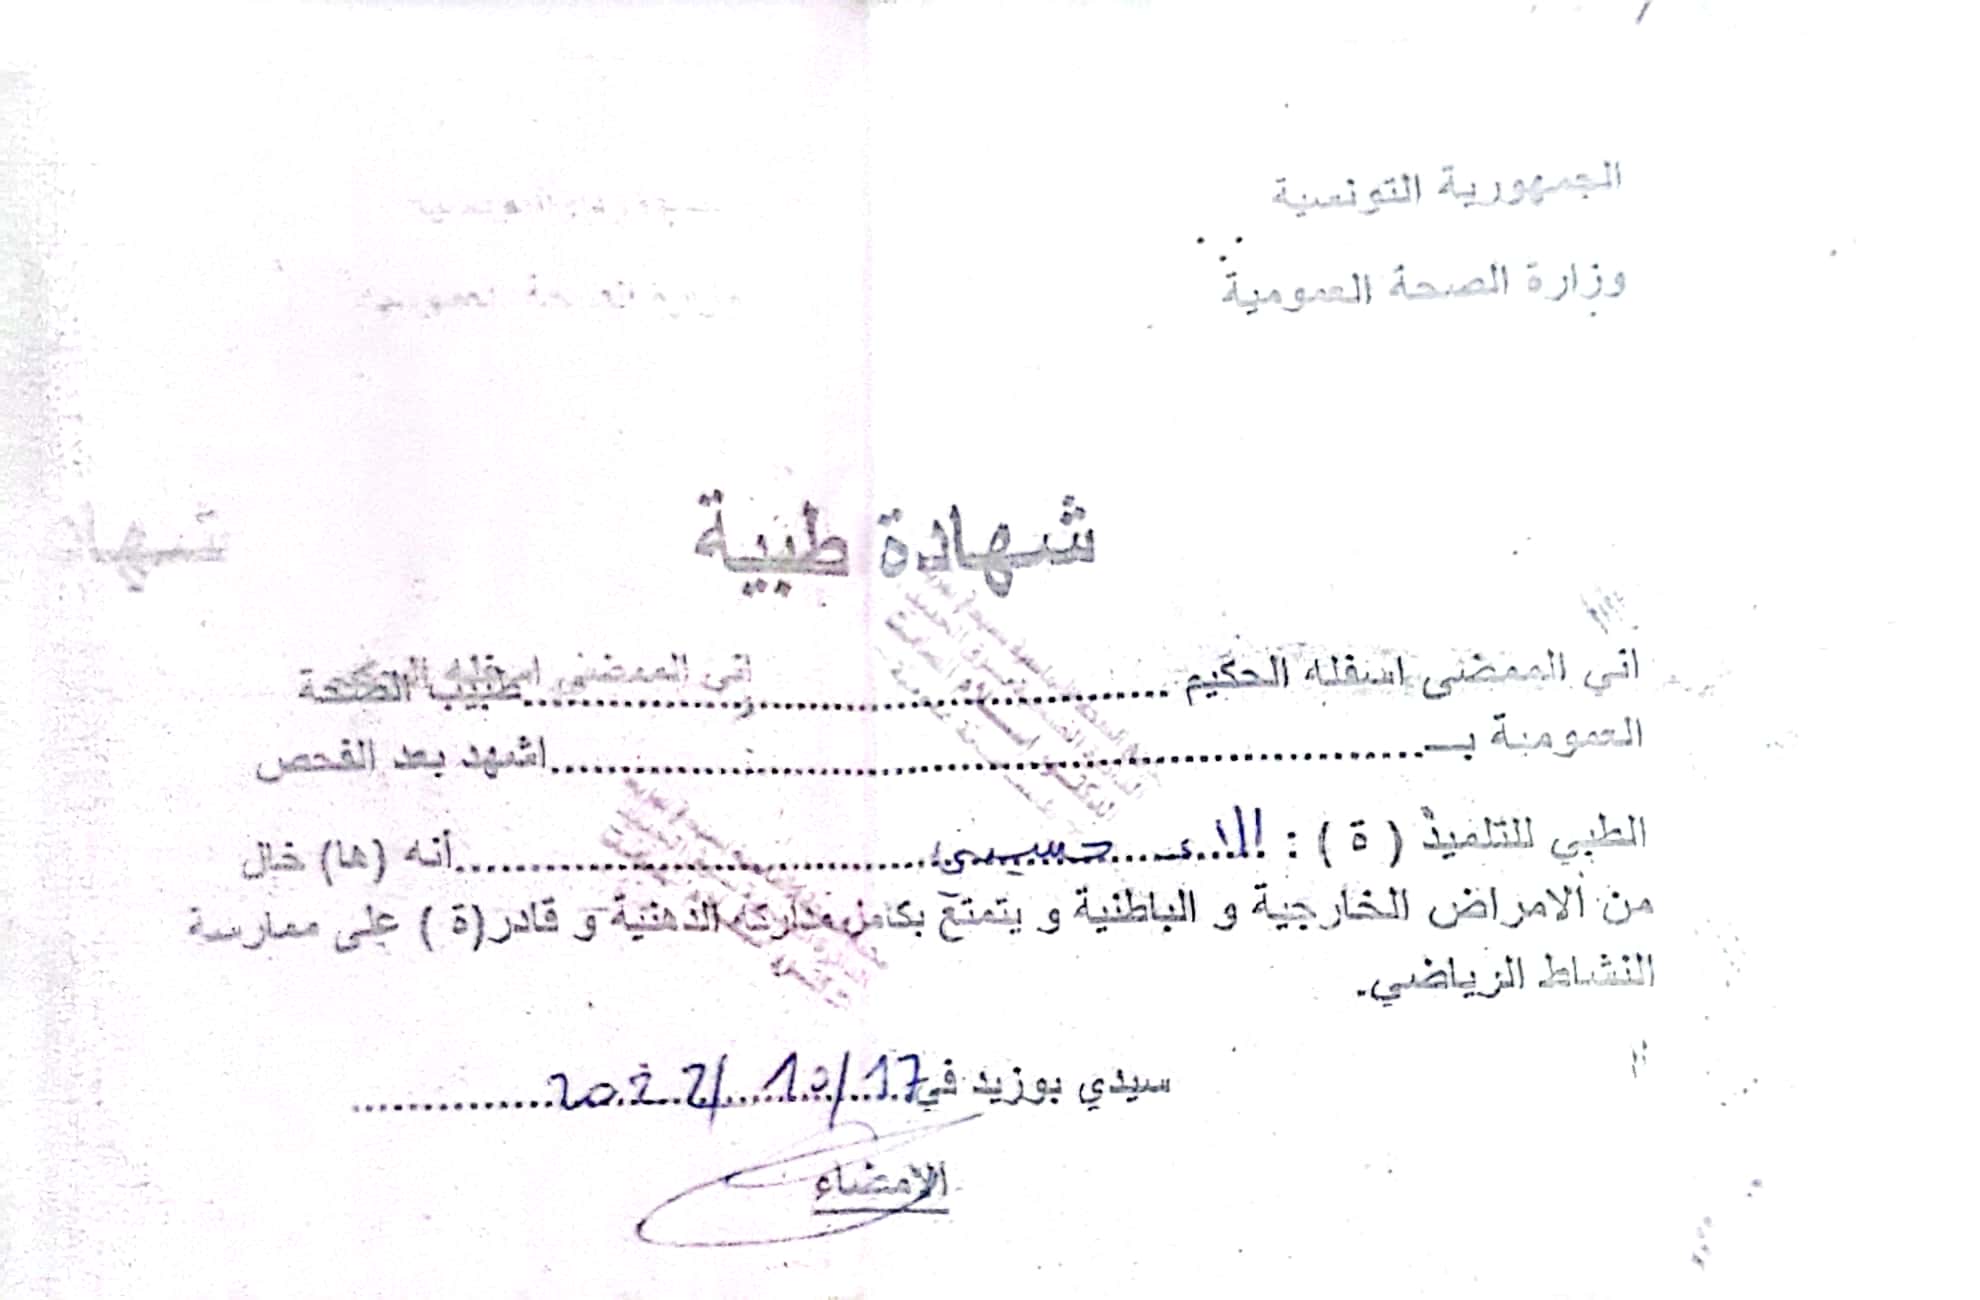 الجمهورية التونسية
وزارة الصحة العمومية
شهادة طبية
اني الممضى اسفله الحكيم ........................ طبيب الصحة
العمومية بـ ........................ اشهد بعد الفحص
الطبي للتلميذ ( ة ) : ........................ أنه (ها) خال
من الامراض الخارجية و الباطنية و يتمتع بكامل مداركه الذهنية و قادر(ة ) على ممارسة
النشاط الرياضي.
سيدي بوزيد في 17/10/2022
الامضاء